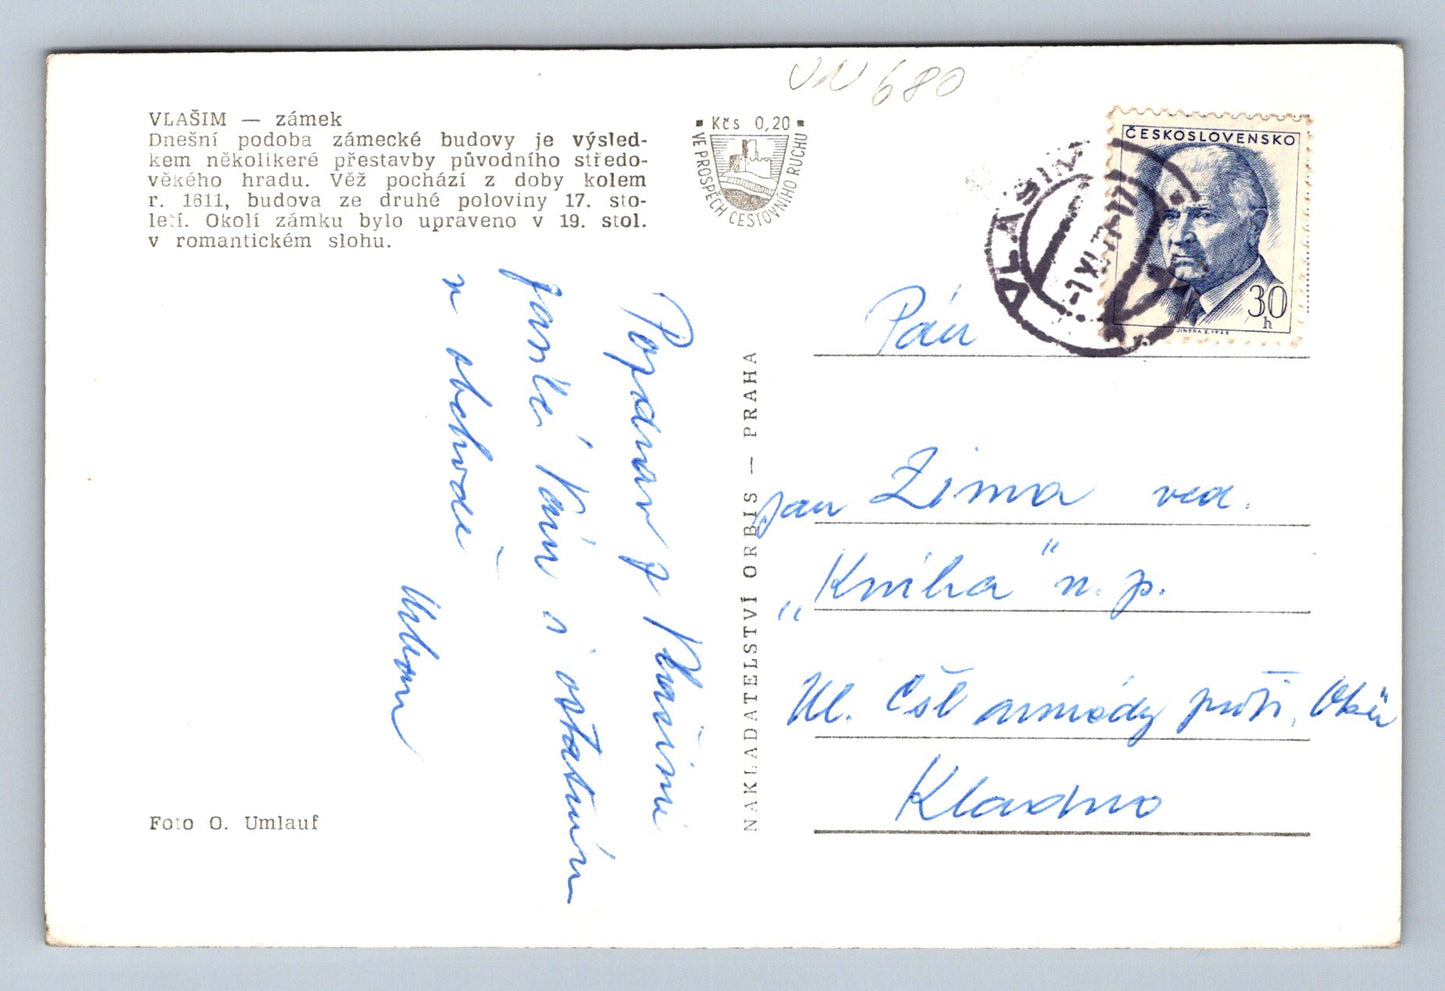 VN 680
VLAŠIM — zámek
Dnešní podoba zámecké budovy je výsled-
kem několikeré přestavby původního středo-
věkého hradu. Věž pochází z doby kolem
r. 1611, budova ze druhé poloviny 17. sto-
letí. Okolí zámku bylo upraveno v 19. stol.
v romantickém slohu.
Kčs 0,20
VE PROSPĚCH CESTOVNÍHO RUCHU
ČESKOSLOVENSKO
30
h
JINDRA S. 1968
VLAŠIM
Pozdrav z
Vám s ostatním
v obchodě
NAKLADATELSTVÍ ORBIS — PRAHA
Pán
Jan Zima ved.
„Kniha" n. p.
Ul. Čsl armády proti
Kladno
Foto O. Umlauf